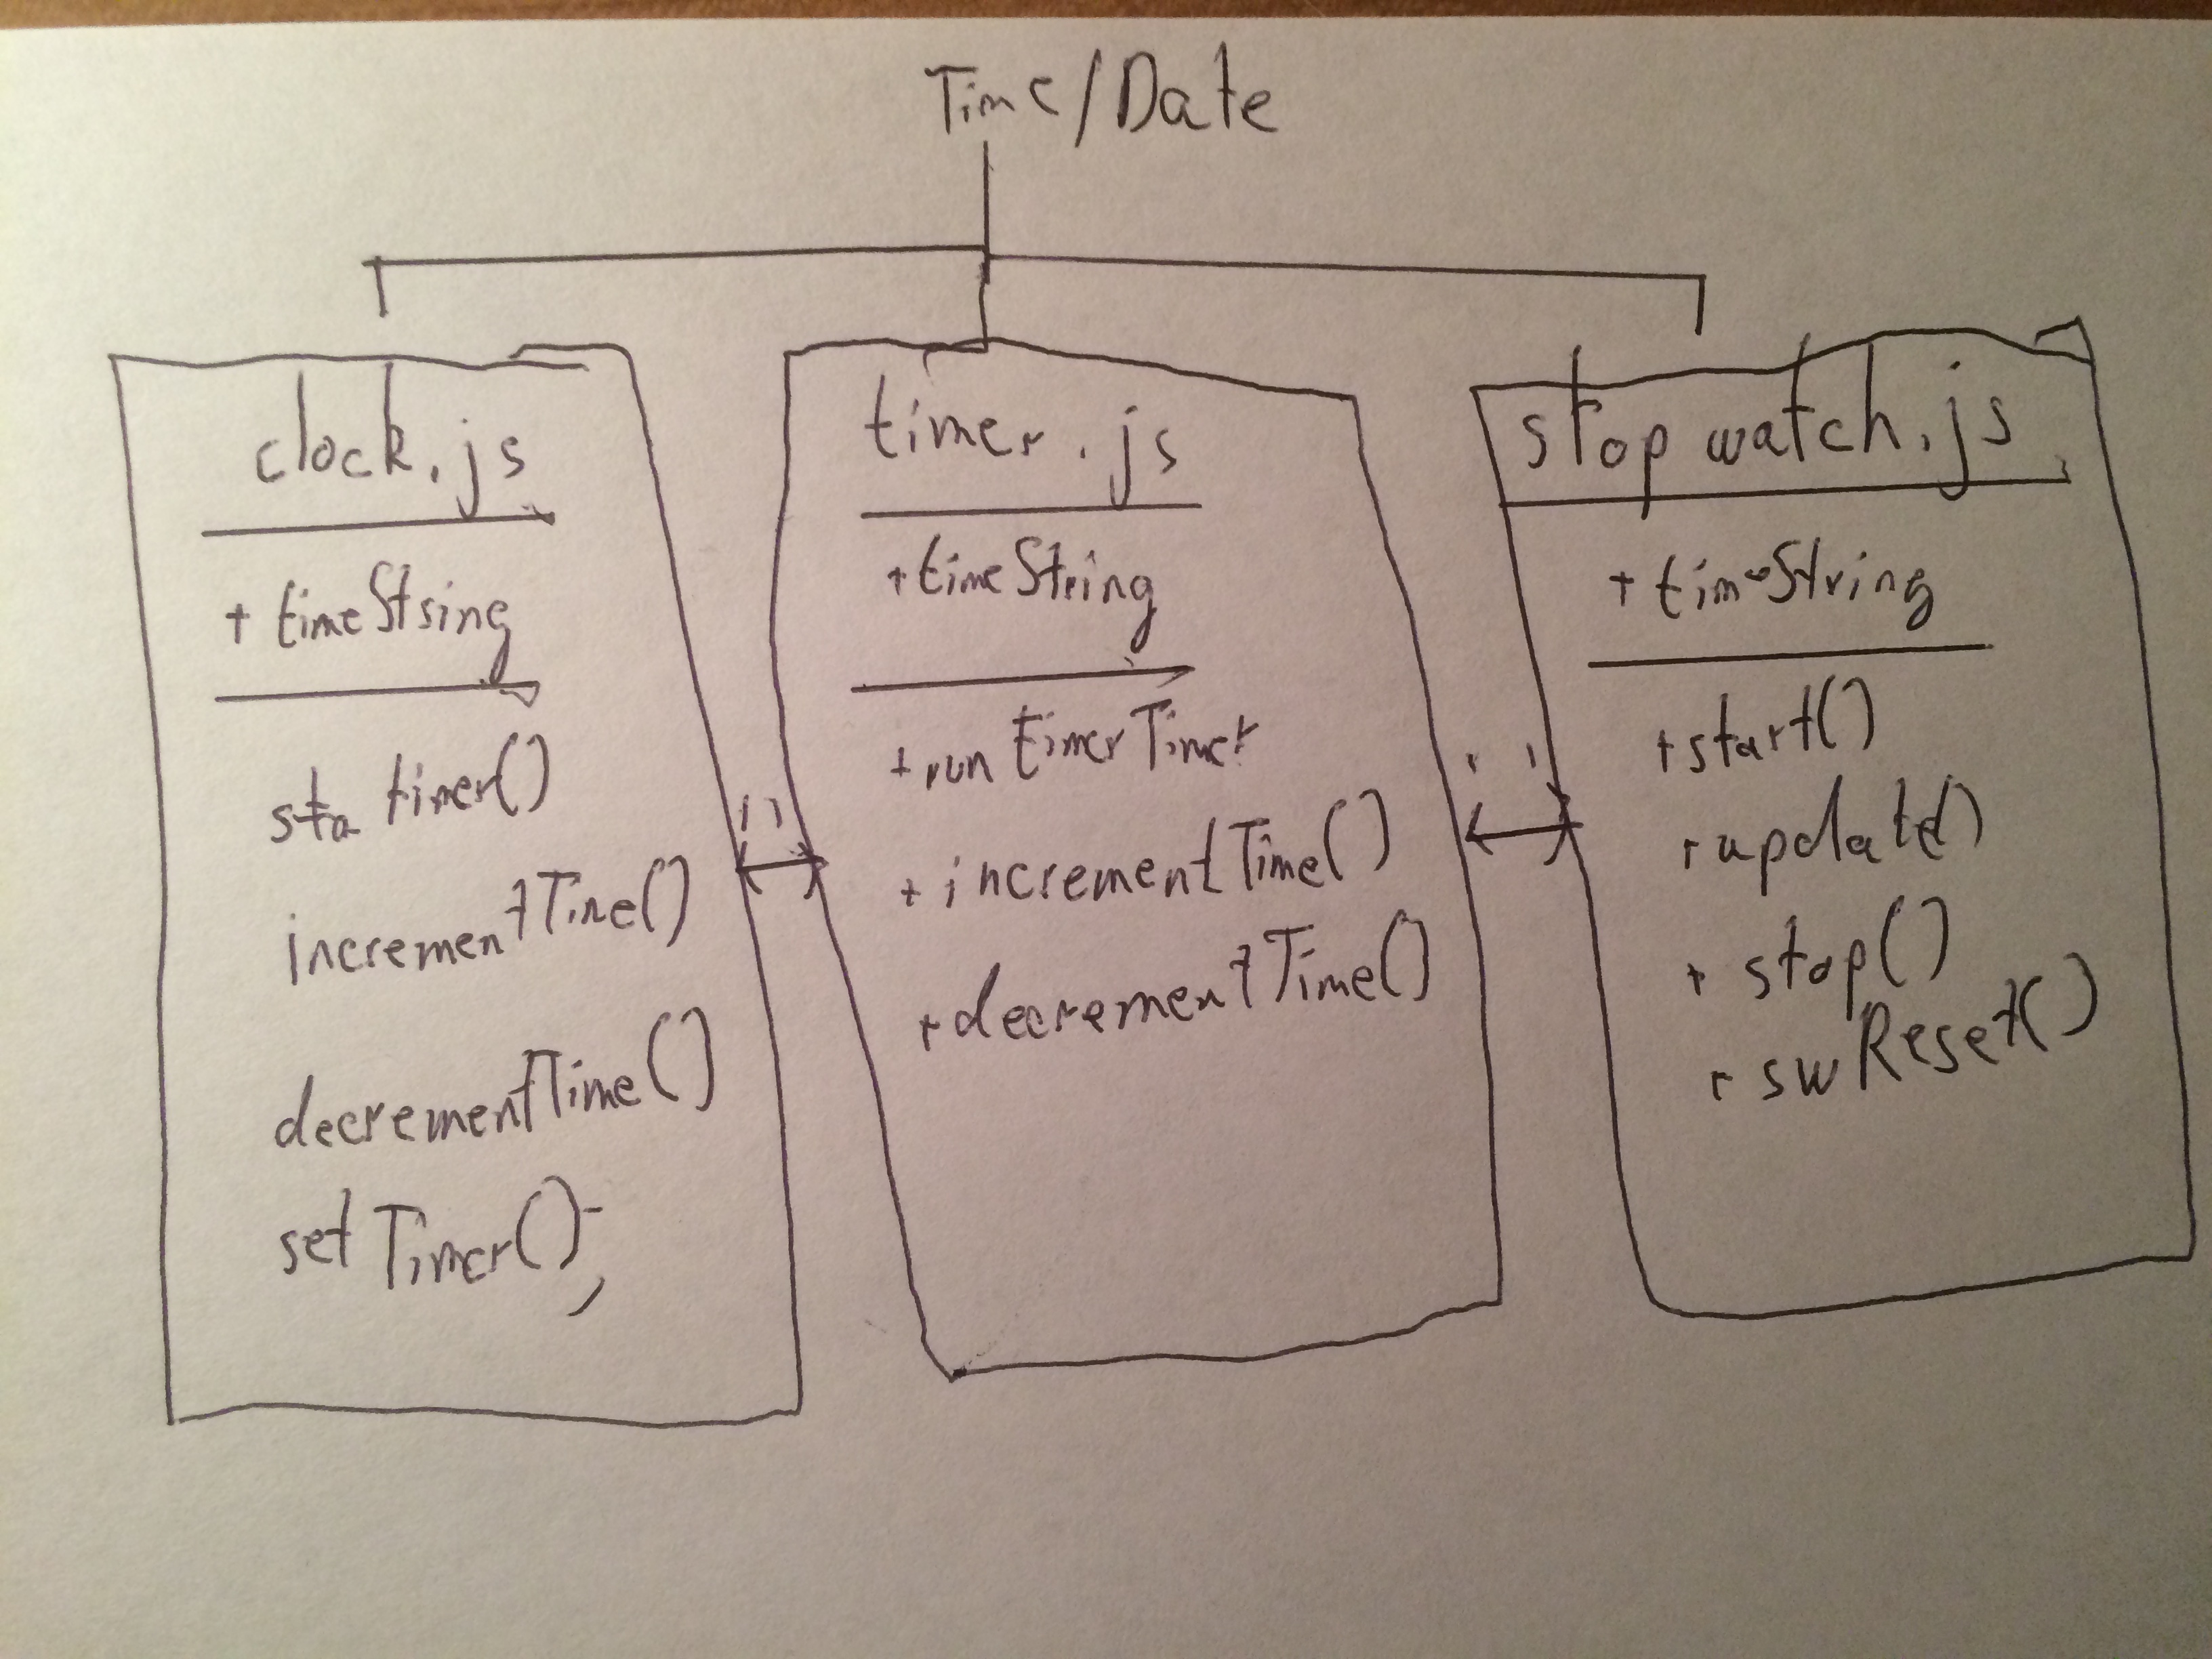 Time/Date
clock.js
+ timeStsing
sta timer()
incrementTime()
decrementTime()
set Timer();
timer.js
+timeString
+run timerTimer
+ incrementTime()
+decrementTime()
stop watch.js
+ timeString
+start()
+update()
+ stop()
+ swReset()